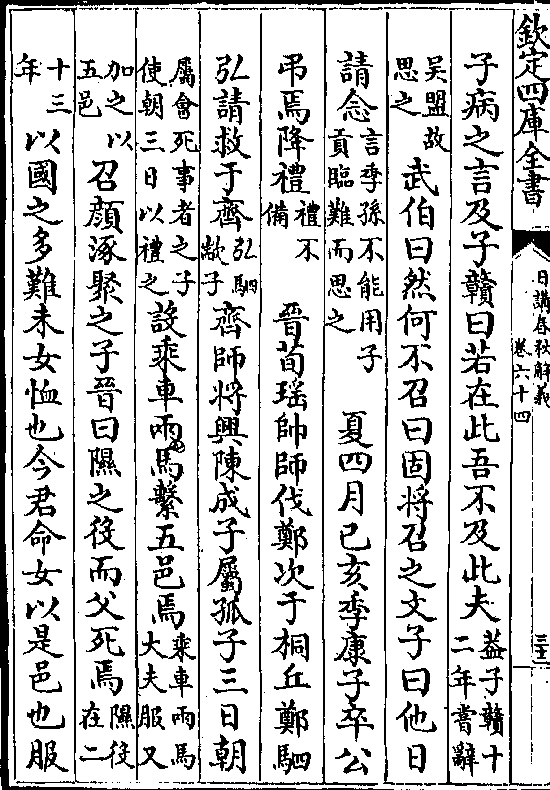 欽定四庫全書
日講春秋解義
卷六十四
子病之言及子贛曰若在此吾不及此夫蓋子贛十二年嘗辭
吳盟故思之武伯曰然何不召曰固將召之文子曰他日
請念言季孫不能用子貢臨難而思之夏四月己亥季康子卒公
弔焉降禮禮不備晉荀瑤帥師伐鄭次于桐丘鄭駟
弘請救于齊弘駟歂子齊師將興陳成子屬孤子三日朝
屬會死事者之子使朝三日以禮之設乘車兩馬繫五邑焉乘車兩馬大夫服又
加之以五邑召顏涿聚之子晉曰隰之役而父死焉隰役在二
十三年以國之多難未女恤也今君命女以是邑也服